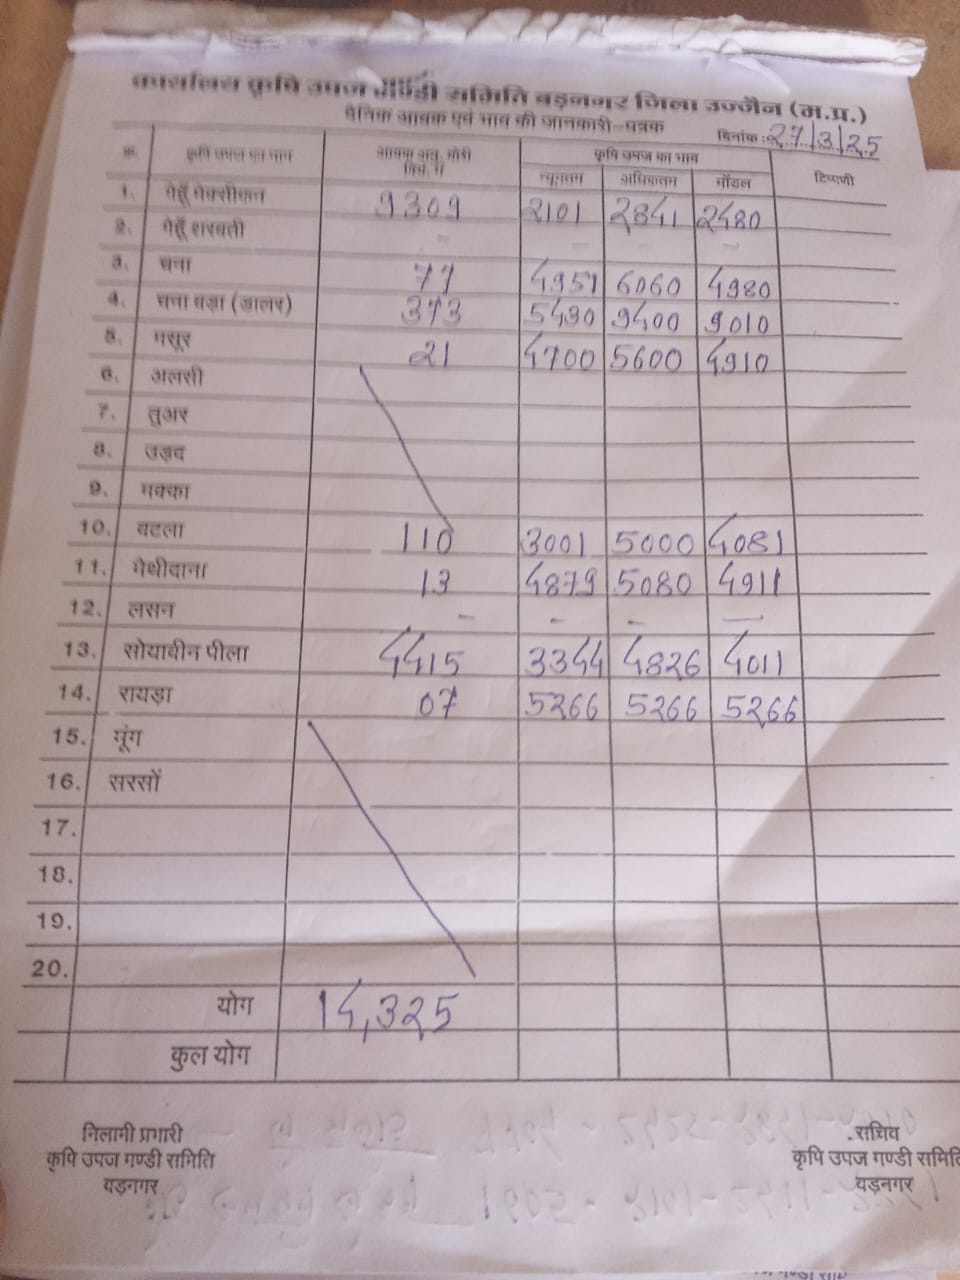 कार्यालय कृषि उपज मण्डी समिति बड़नगर जिला उज्जैन (म.प्र.)
दैनिक आवक एवं भाव की जानकारी-पत्रक
दिनांक : 27/3/25
क्र. कृषि उपज का नाम आवक कृषि उपज का भाव टिप्पणी
न्यूनतम अधिकतम मॉडल
1. गेहूँ मेक्सीकन 9309 2101 2841 2480
2. गेहूँ शरबती - - - -
3. चना 77 4951 6060 4980
4. चना बड़ा (डालर) 373 5490 9400 9010
5. मसूर 21 4700 5600 4910
6. अलसी
7. तुअर
8. उड़द
9. मक्का
10. बटला 110 3001 5000 4081
11. मैथीदाना 13 4879 5080 4911
12. लसन - - - -
13. सोयाबीन पीला 4415 3344 4826 4011
14. रायड़ा 07 5266 5266 5266
15. मूंग
16. सरसों
17.
18.
19.
20.
योग 14,325
कुल योग
निलामी प्रभारी सचिव
कृषि उपज मण्डी समिति कृषि उपज मण्डी समिति
बड़नगर बड़नगर